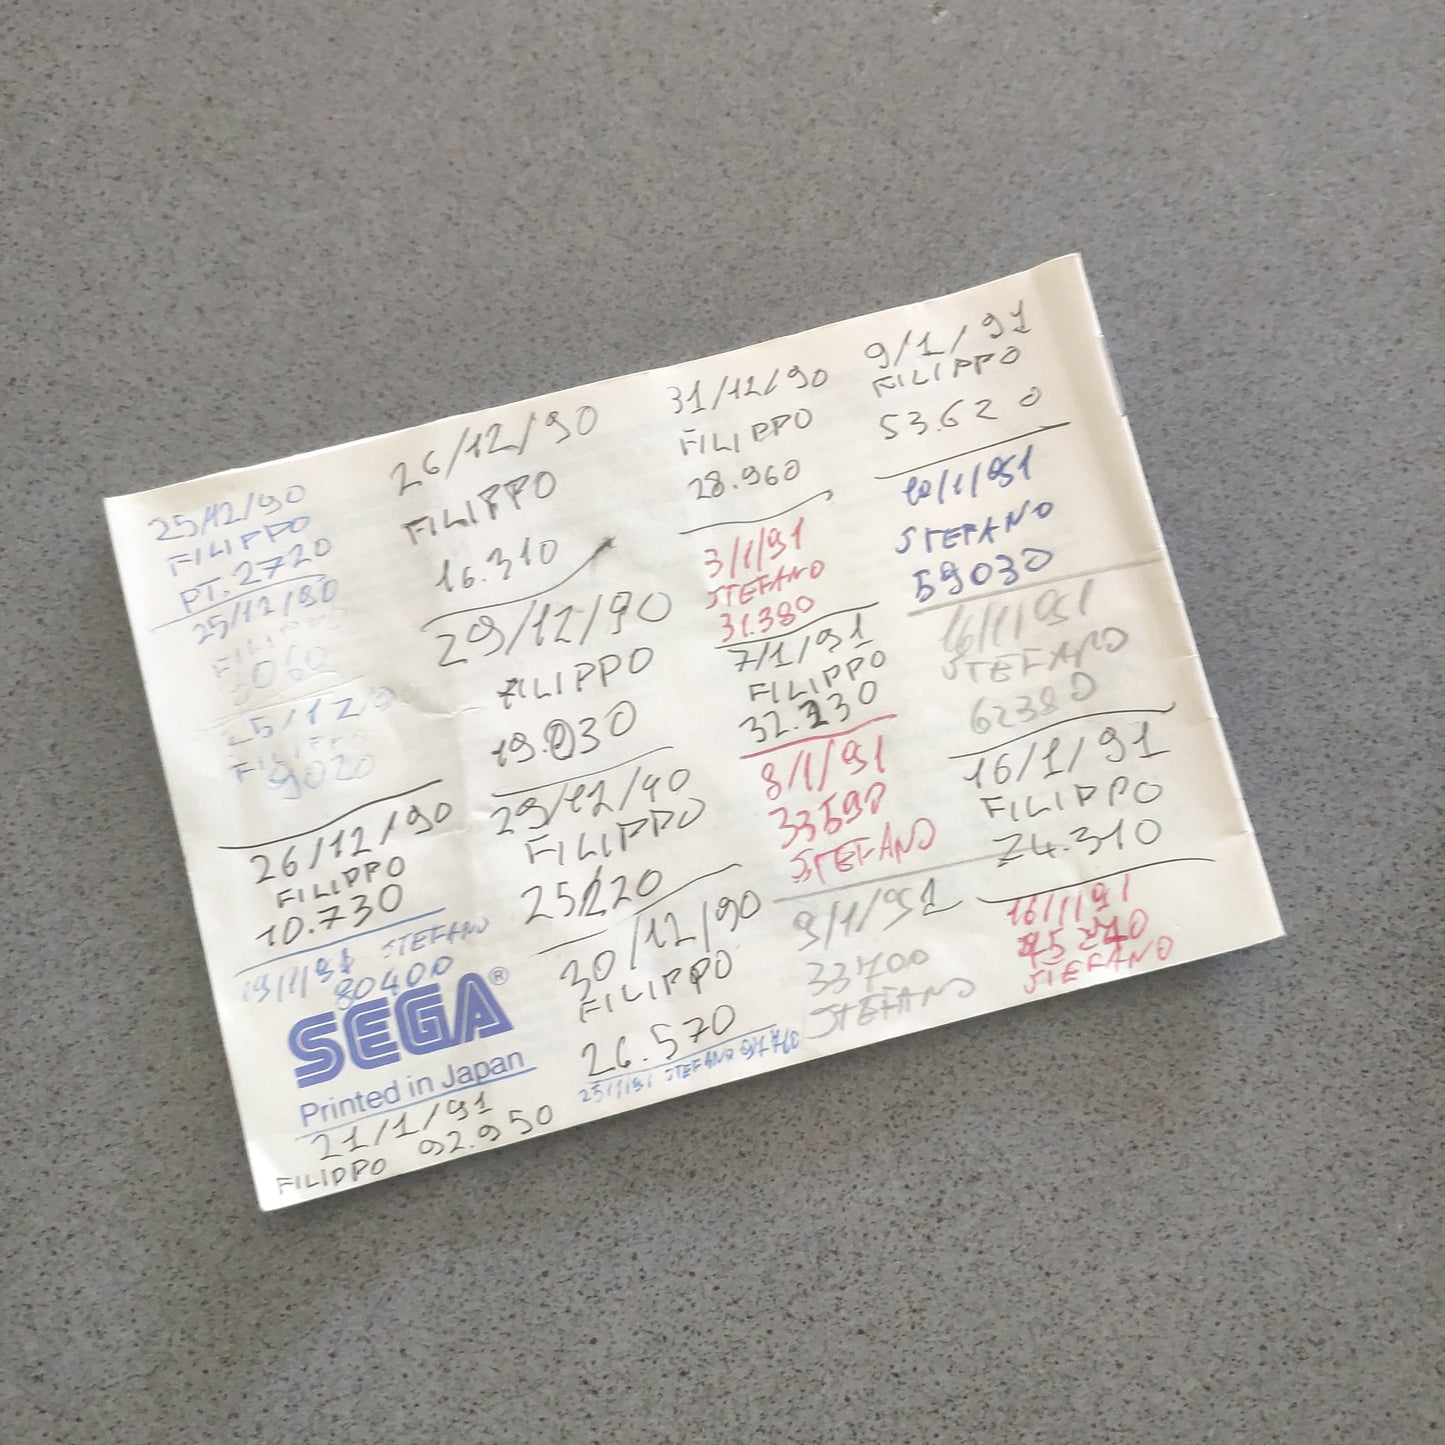 25/12/90
FILIPPO
PT. 2720
25/12/90
FILIPPO
5060
25/12/90
FILIPPO
9020
26/12/90
FILIPPO
10.730
19/1/91 STEFANO
80400
SEGA®
Printed in Japan
21/1/91
FILIPPO 92.950
26/12/90
FILIPPO
16.310
29/12/90
FILIPPO
19.030
29/12/90
FILIPPO
25220
30/12/90
FILIPPO
26.570
23/1/91 STEFANO 94760
31/12/90
FILIPPO
28.960
3/1/91
STEFANO
31.380
7/1/91
FILIPPO
32.230
8/1/91
33590
STEFANO
9/1/91
33700
STEFANO
9/1/91
FILIPPO
53.620
10/1/91
STEFANO
59030
16/1/91
STEFANO
62380
16/1/91
FILIPPO
74.310
16/1/91
STEFANO